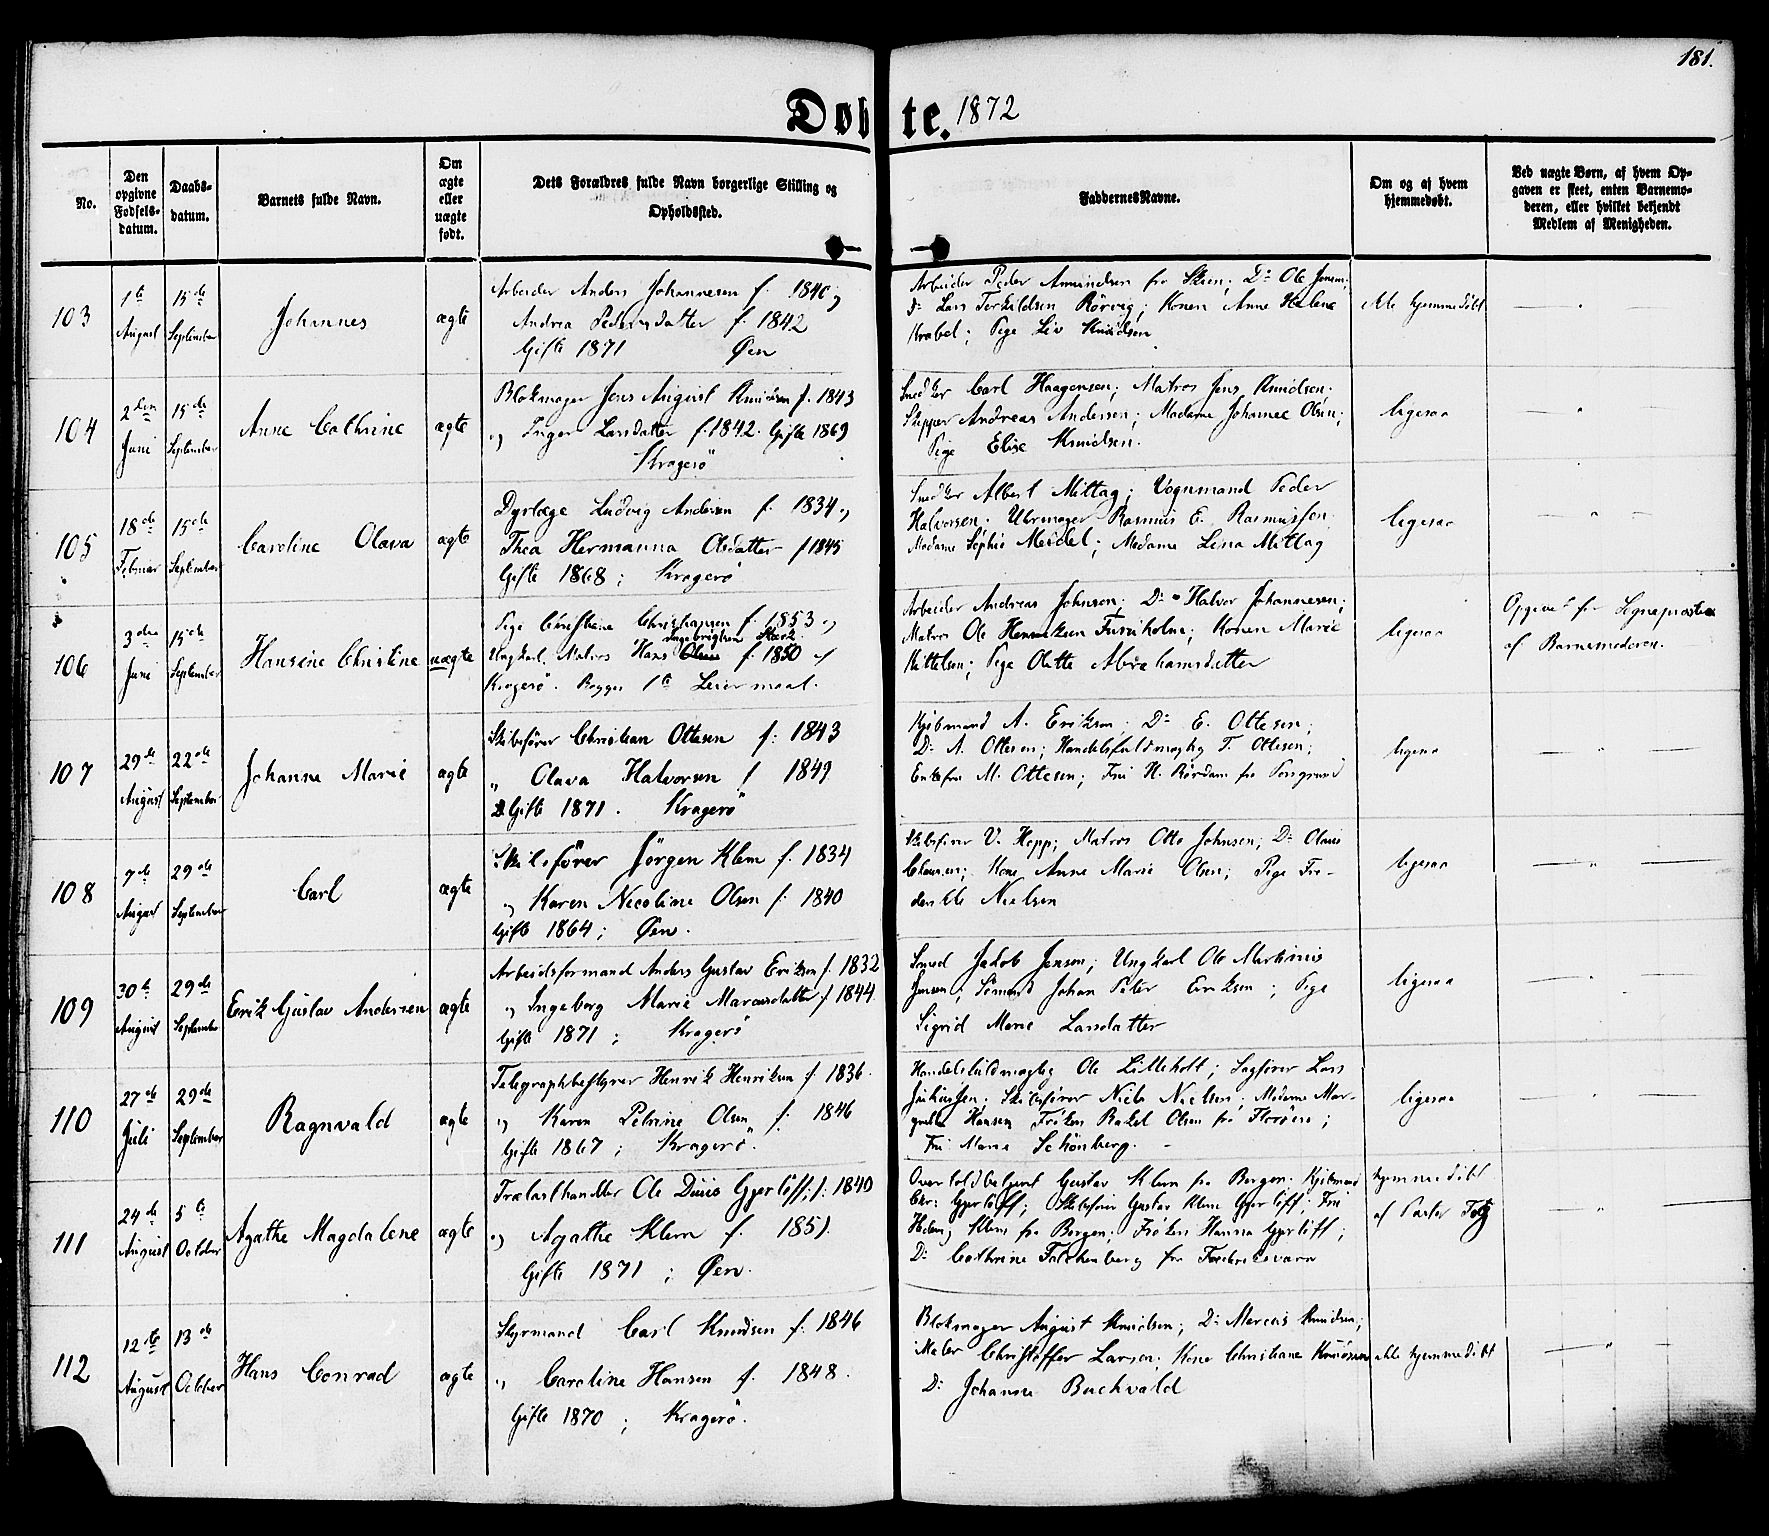 181.
Døbte. 1872
No.
Den opgivne Fødsels-datum.
Daabs-datum.
Barnets fulde Navn.
Om ægte eller uægte født.
Dets Forældres fulde Navn borgerlige Stilling og Opholdssted.
Faddernes Navne.
Om og af hvem hjemmedøbt.
Ved uægte Børn, af hvem Opgaven er skeet, enten Barnemoderen, eller hvilket bekjendt Medlem af Menigheden.
103
1te August
15de September
Johannes
ægte
Arbeider Anders Johannesen f. 1840 og
Andrea Pedersdatter f. 1842
Gifte 1871 Øen
Arbeider Peder Amundsen fra Skien; Do Ole Jensen;
Do Lars Terkildsen Rörvig; Konen Anne Helene
Krabel; Pige Liv Knudsen
ikke hjemmedöbt
— " —
104
2den Juni
15de September
Anne Cathrine
ægte
Blokmager Jens August Knudsen f. 1843
og Inger Larsdatter f. 1842. Gifte 1869
Kragerö
Snedker Carl Haagensen; Matros Jens Knudsen;
Skipper Andreas Andersen; Madame Johanne Olsen;
Pige Elise Knudsen.
ligesaa
— " —
105
18de Februar
15de September
Caroline Olava
ægte
Dyrlæge Ludvig Andersen f. 1834 og
Thea Hermanna Olsdatter f 1845
Gifte 1868; Kragerö
Snedker Albert Mittag; Vognmand Peder
Halvorsen; Uhrmager Rasmus E. Rasmussen
Madame Sophie Meidel; Madame Lena Mittag
ligesaa
— " —
106
3die Juni
15de September
Hansine Christine
uægte
Pige Christiane Christiansen f. 1853 og
Ingebrigtsen
Ungkarl, Matros Hans Olsen f. 1850 af
Kragerö. Begges 1te Leiermaal.
Arbeider Andreas Johnsen; Do Halvor Johannesen;
Matros Ole Henriksen Furuholm; Konen Marie
Kittelsen; Pige Olette Abrahamsdatter
ligesaa
Opgivet for Sogneprästen
af Barnemoderen.
107
29de August
22de September
Johanne Marie
ægte
Skibsfører Christian Ottesen f: 1843
" Olava Halvorsen f 1849
Gifte 1871. Kragerö
Kjöbmand A. Eriksen; Do E. Ottesen;
Do A. Ottesen; Handelsfuldmægtig T. Ottesen;
Enkefru M. Ottesen; Fru H. Rördam fra Porsgrund
ligesaa
— " —
108
9de August
29de September
Carl
ægte
Skibsfører Jörgen Klem f. 1834
og Karen Nicoline Olsen f: 1840
Gifte 1864; Øen.
Skibsfører V. Hepp; Matros Otto Johnsen; Do Olaus
Clausen; Kone Anne Marie Olsen; Pige Fre-
derikke Nielsen
ligesaa
— " —
109
30te August
29de September
Erik Gustav Andersen
ægte
Arbeidsformand Anders Gustav Eriksen f. 1832
og Ingeborg Marie Marcusdatter f 1844
Gifte 1871; Kragerö
Smed Jakob Jensen; Ungkarl Ole Martinius
Jensen; Sömand Johan Peter Eriksen; Pige
Sigrid Marie Larsdatter
ligesaa
— " —
110
27de Juli
29de September
Ragnvald
ægte
Telegraphbestyrer Henrik Henriksen f. 1836.
og Karen Petrine Olsen f. 1846
Gifte 1867; Kragerö.
Handelsfuldmægtig Ole Lilleholt; Sagfører Lars
Juliussen; Skibsfører Niels Nielsen; Madame Mar-
grethe Hansen Fröken Rakel Olsen fra Floröen;
Fru Marie Schönberg.
ligesaa
— " —
111
24de August
5te October
Agathe Magdalene
ægte
Trælasthandler Ole Duus Gjerlöff f: 1840
og Agathe Klem f. 1851.
Gifte 1871; Øen.
Overtoldbetjent Gustav Klem fra Bergen; Kjöbmand
Chr: Gjerlöff; Skibsfører Gustav Klem Gjerlöff; Fru
Klem fra Bergen; Fröken Hanna Gjerlöff;
Do Cathrine Falkenberg fra Frederiksværn
hjemmedöbt
af Pastor
— " —
112
12te August
13de October
Hans Conrad
ægte
Styrmand Carl Knudsen f. 1846
" Caroline Hansen f. 1848.
Gifte 1870; Kragerö.
Blokmager August Knudsen; Do Marcus Knudsen;
Maler Christoffer Larsen; Kone Christiane Knudsen
Do Johanne Buchvald
ikke hjemmedöbt
— " —